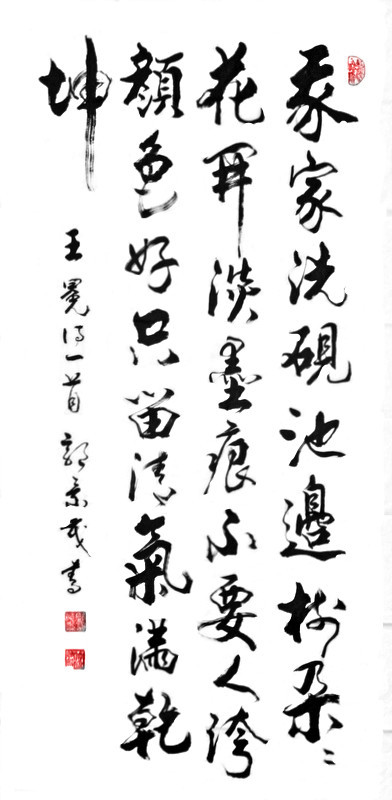 我家洗硯池邊樹朵〻
花開淡墨痕不要人誇
顏色好只留清氣滿乾
坤
王冕詩一首 郭 書